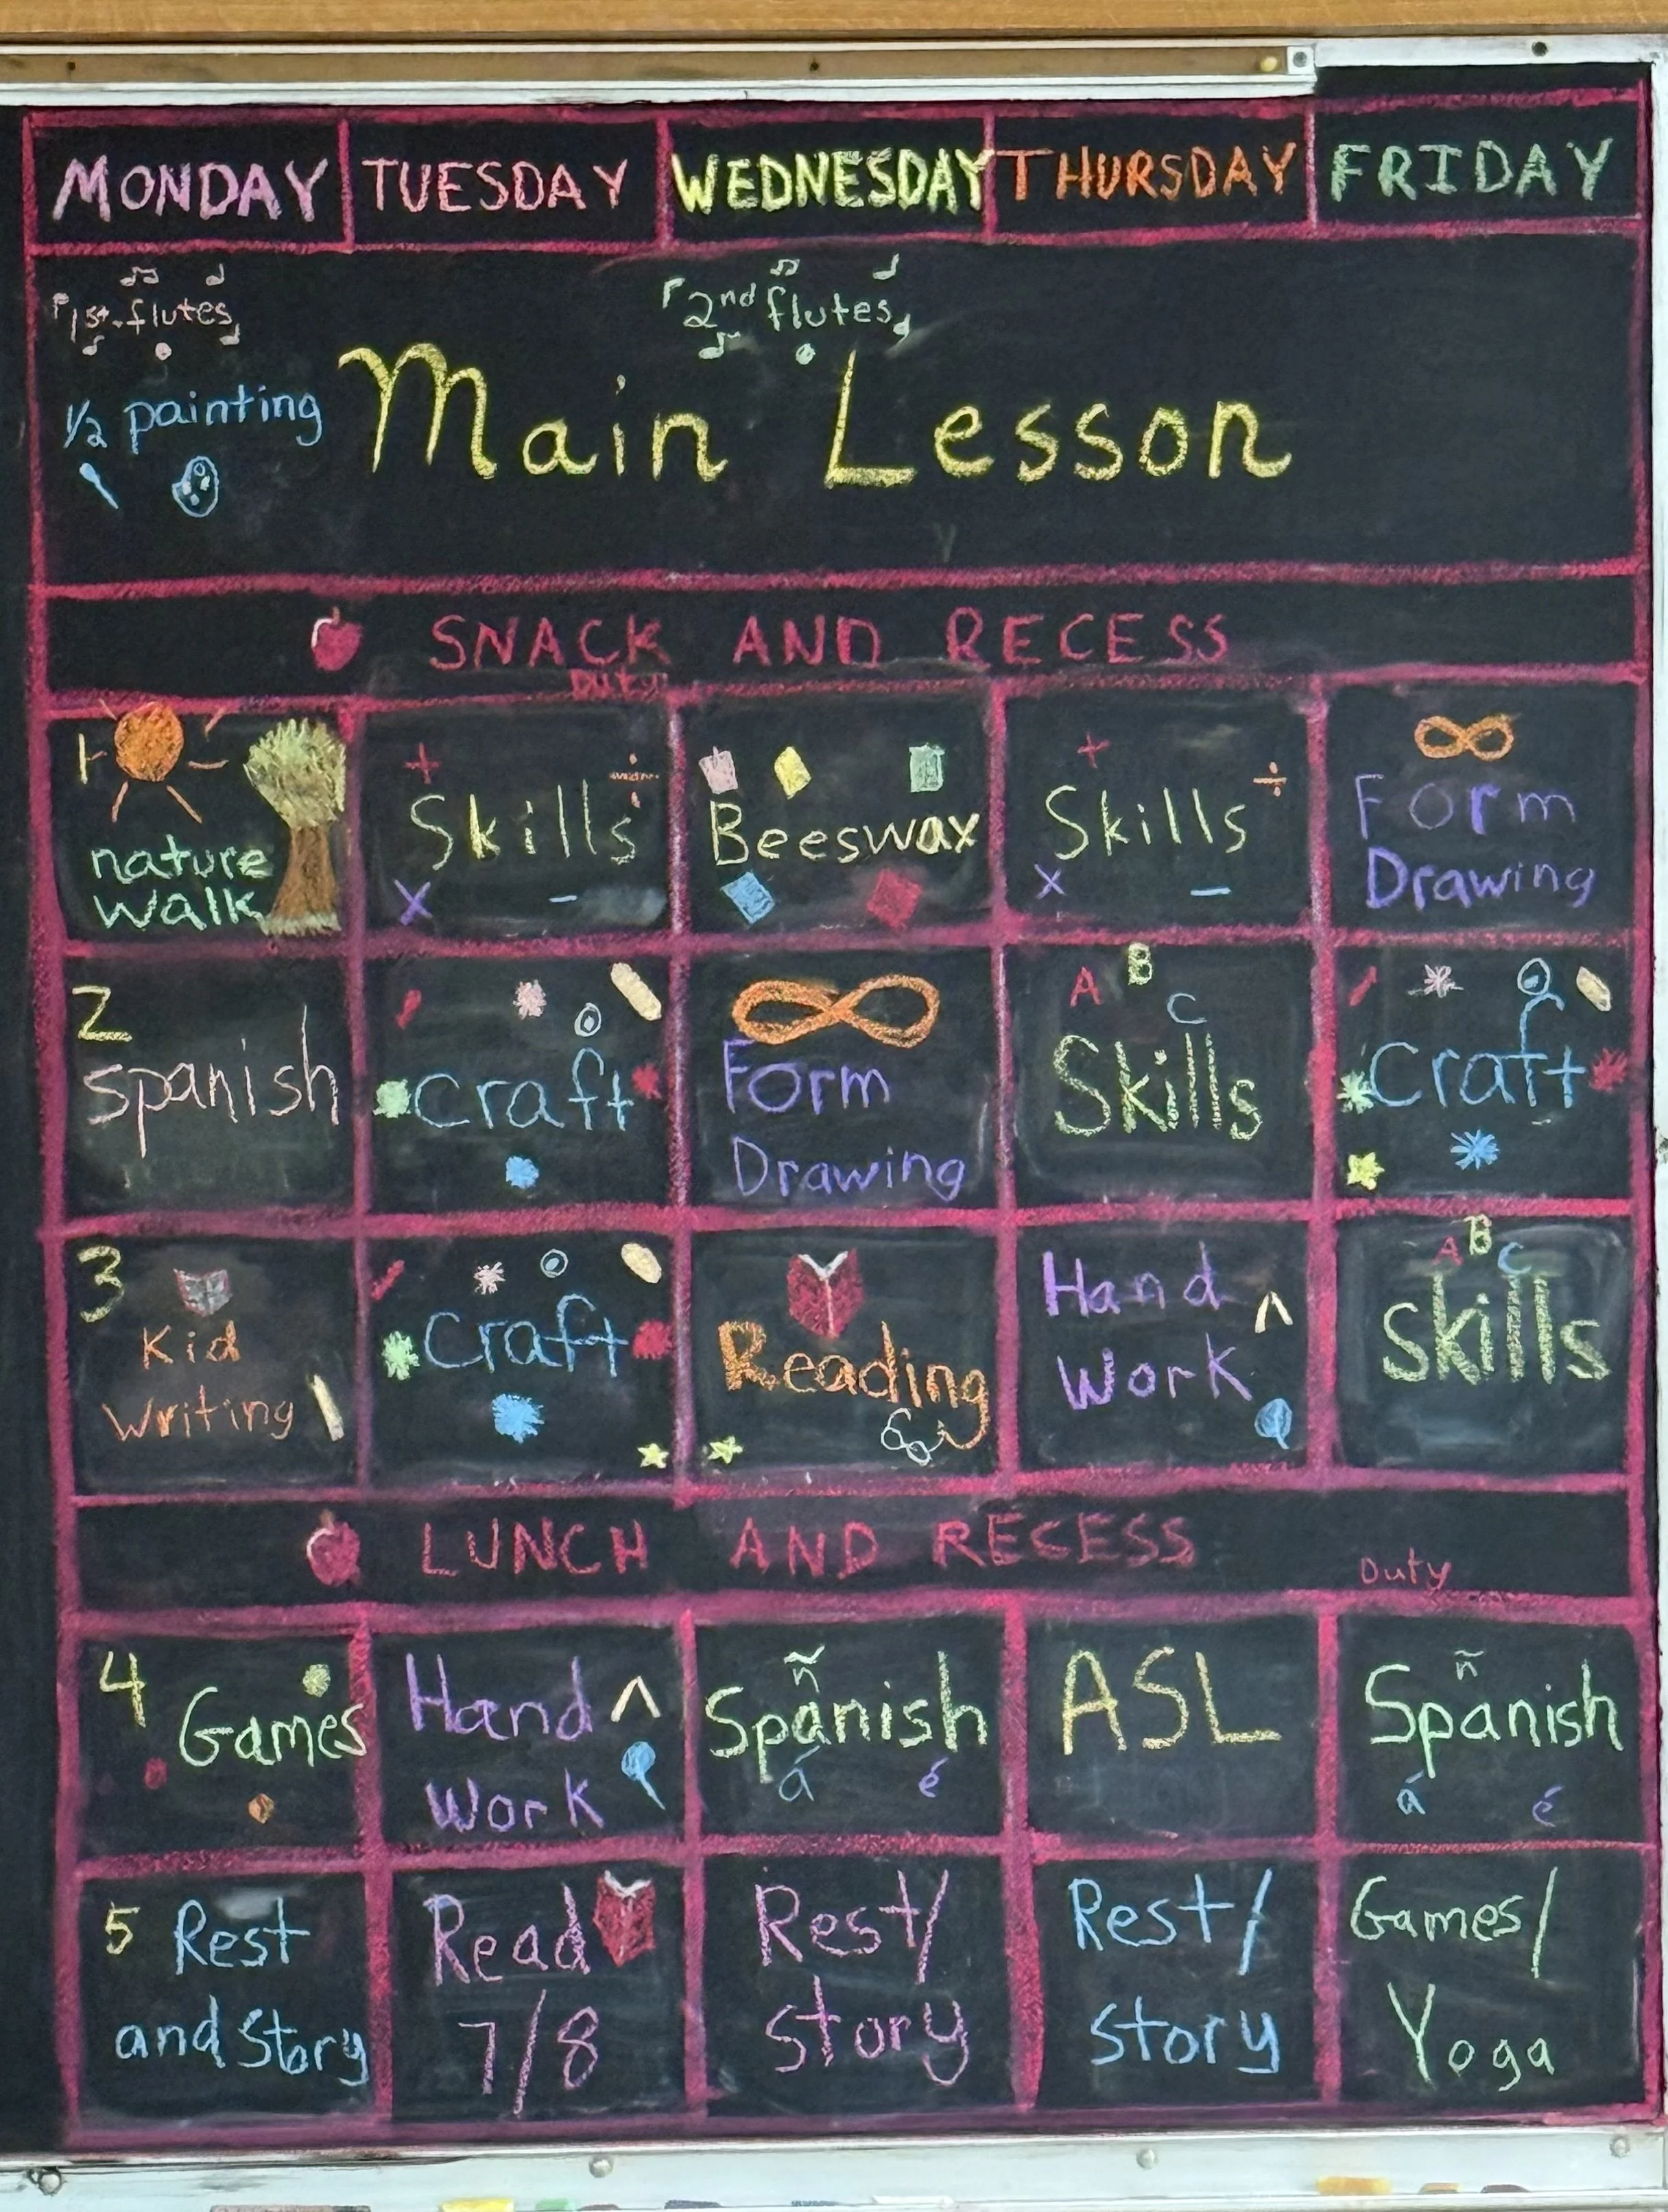 MONDAY TUESDAY WEDNESDAY THURSDAY FRIDAY
1st flutes
2nd flutes
1/2 painting
Main Lesson
SNACK AND RECESS
Duty
1
nature
walk
+
÷
Skills
x
-
Beeswax
+
÷
Skills
x
-
Form
Drawing
2
spanish
craft
Form
Drawing
A B C
Skills
craft
3
Kid
writing
craft
Reading
Hand
Work
A B C
Skills
LUNCH AND RECESS
Duty
4
Games
Hand
Work
ñ
Spanish
á é
ASL
ñ
Spanish
á é
5 Rest
and Story
Read
7/8
Rest/
story
Rest/
story
Games/
Yoga